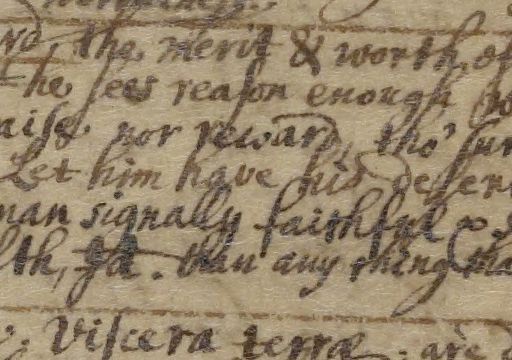 the merit & worth of
he sees reason enough
nor reward, tho' sur
Let him have his deser
man signally faithful
lth, yea. than any thing tha
Viscera terræ. are